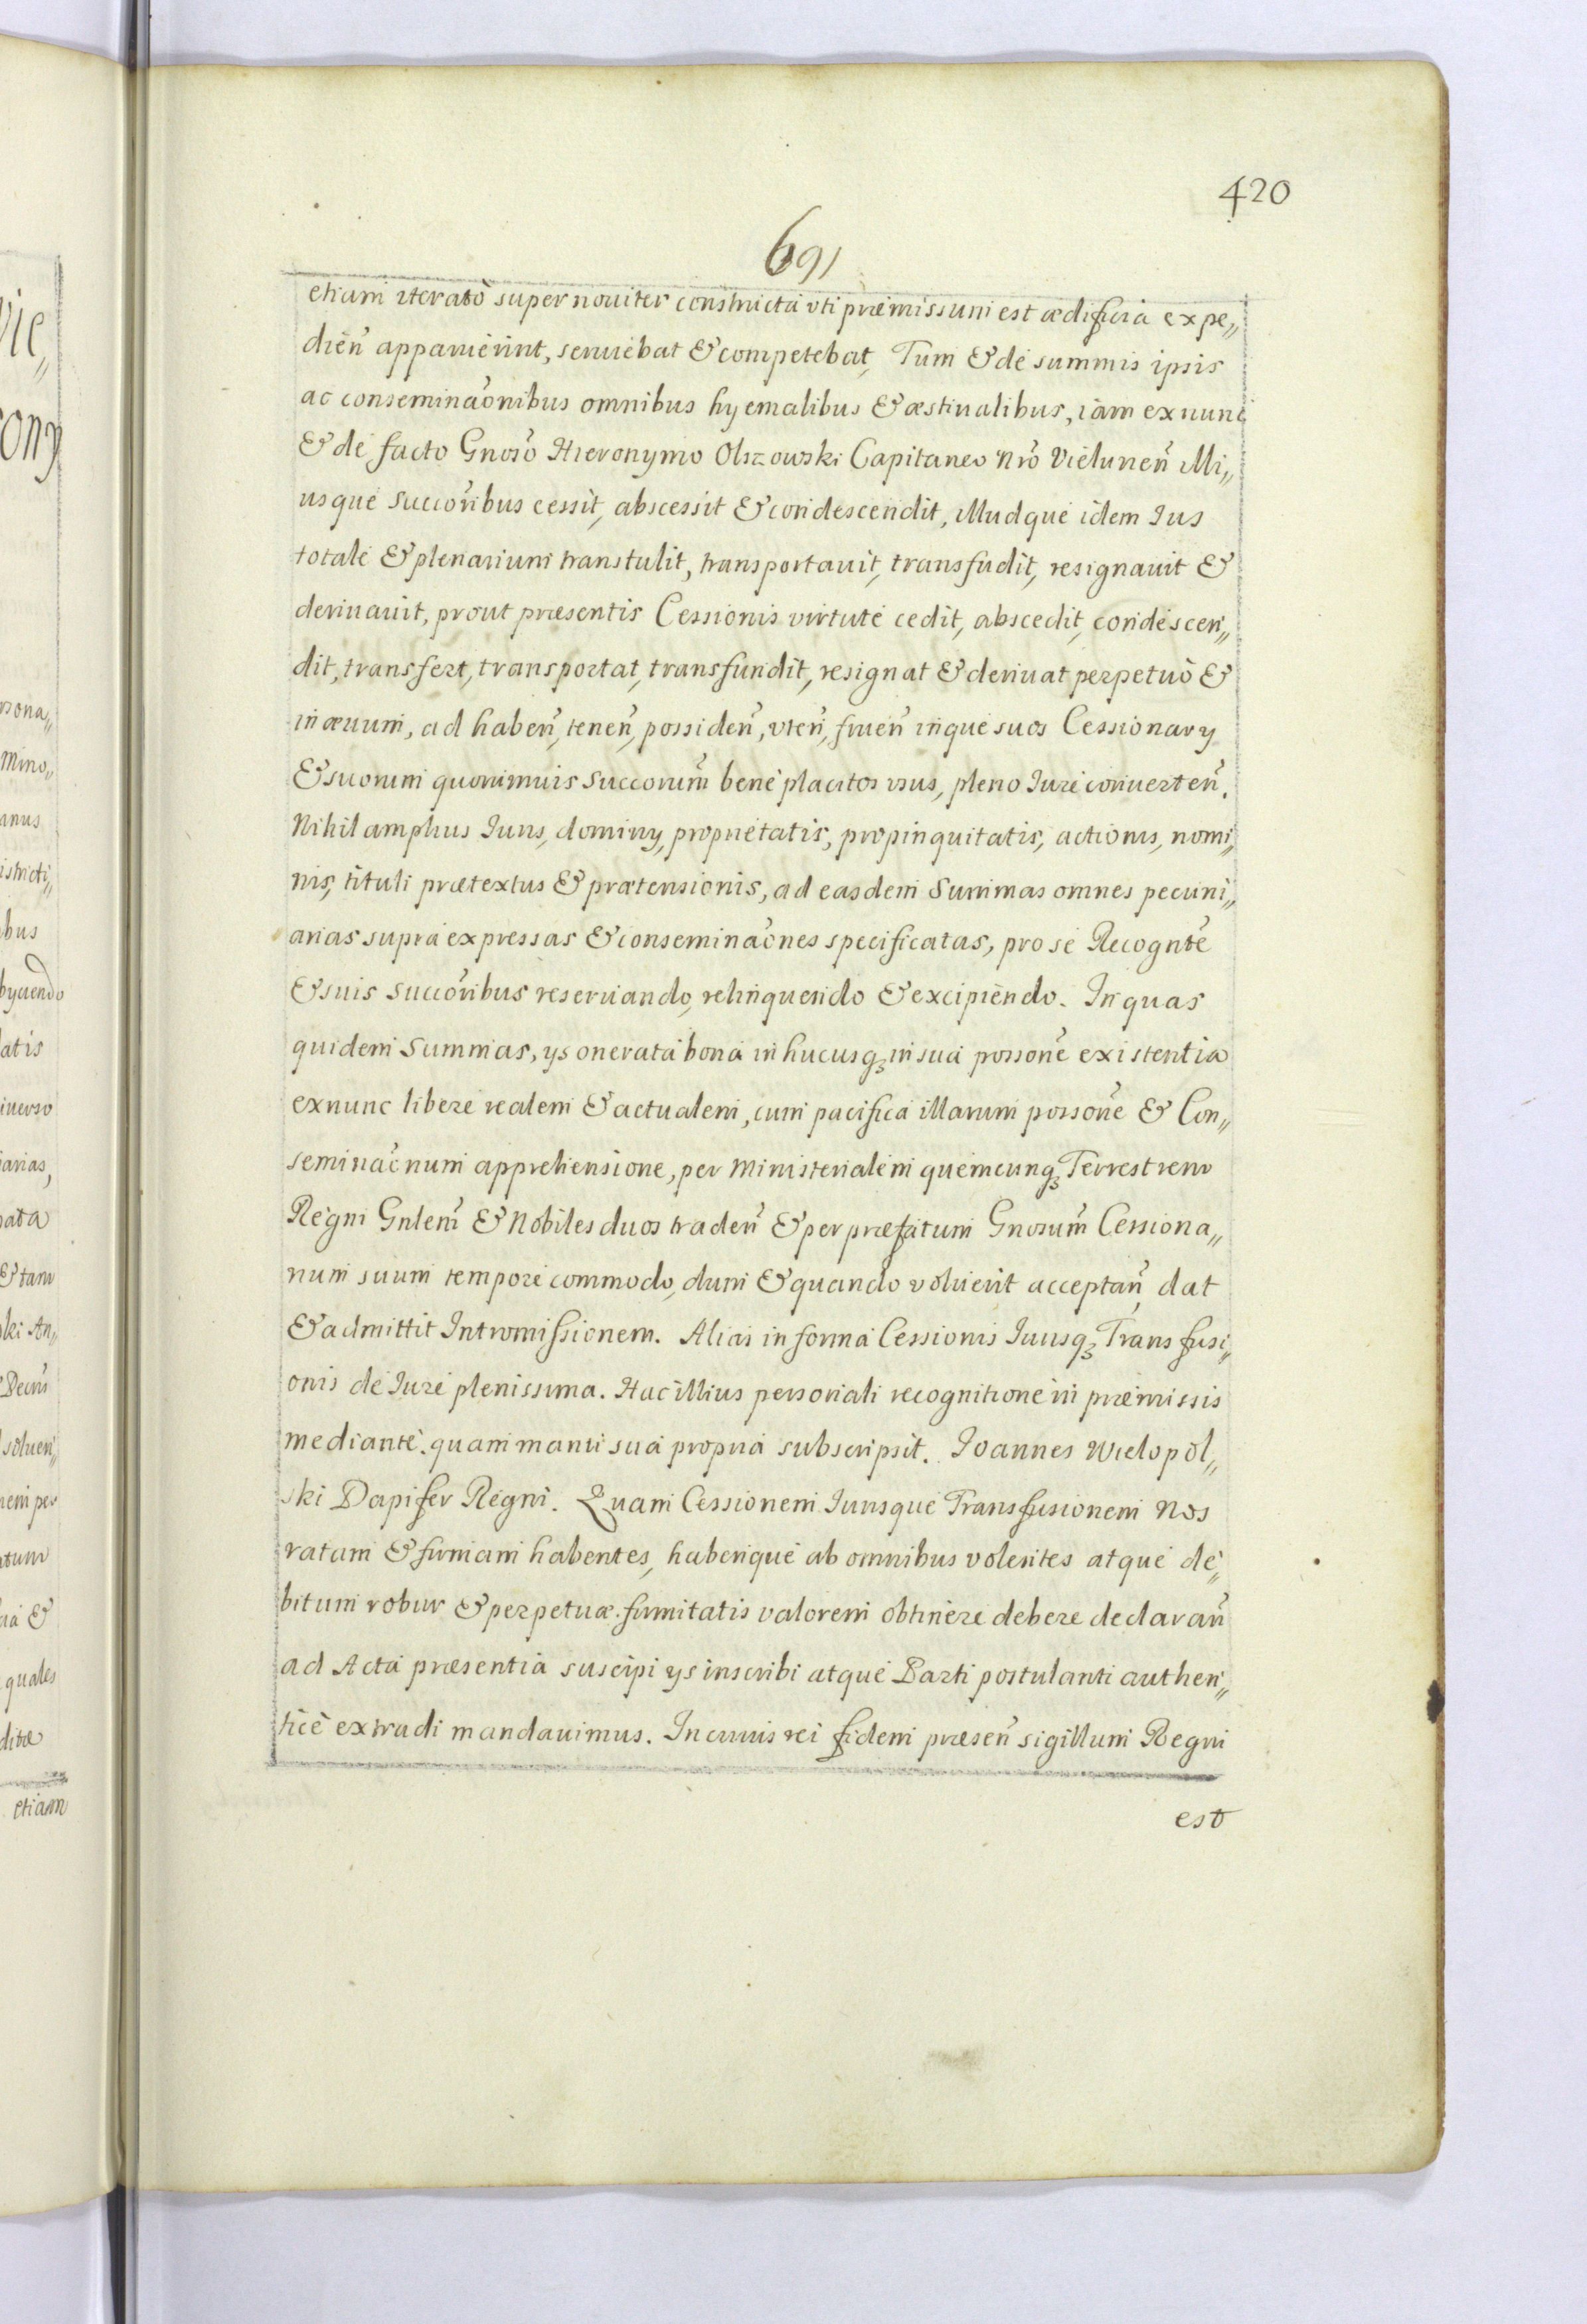 420
691
etiam iteratò super nouiter constructa vti præmissum est ædificia expe„
dień apparuerint, seruiebat & competebat, Tum & de summis ipsis
ac conseminaõnibus omnibus hyemalibus & æstiualibus, iam ex nunc
& de facto Gnoso Hieronymo Olszowski Capitaneo Nro Vielunen̄ illi„
usque succoribus cessit, abscessit & condescendit, illudque idem Ius
totale & plenarium transtulit, transportauit, transfudit, resignauit &
deriuauit, prout præsentis Cessionis virtute cedit, abscedit, condescen„
dit, transfert, transportat, transfundit, resignat & deriuat perpetuò &
in æuum, ad haben̄, tenen̄, possiden̄, vten̄, fruen̄ inque suos Cessionarij
& suorum quorumuis succorum̄ bene placitos vsus, pleno Iure conuerten̄.
Nihil amplius Iuris, dominij, proprietatis, propinquitatis, actionis, nomi„
nis, tituli prætextus & prætensionis, ad easdem summas omnes pecuni„
arias supra expressas & conseminaõnes specificatas, pro se Recognte
& suis succoribus reseruando, relinquendo & excipiendo. In quas
quidem summas, ijs onerata bona in hucusq3 in sua possone existentia
ex nunc libere realem & actualem, cum pacifica illarum possone & Con„
seminaõnum apprehensione, per Ministerialem quemcunq3 Terrestrem
Regni Gnlem̄ & Nobiles duos traden̄ & per præfatum Gnosum̄ Cessiona„
rium suum tempore commodo, dum & quando voluerit acceptan̄, dat
& admittit Intromissionem. Alias in forma Cessionis Iurisq3 Transfusi„
onis de Iure plenissima. Hac illius personali recognitione in præmissis
mediante. quam manu sua propria subscripsit. Joannes Wielopol„
ski Dapifer Regni. Quam Cessionem Iurisque Transfusionem Nos
ratam & firmam habentes, haberique ab omnibus volentes atque de„
bitum robur & perpetuæ firmitatis valorem obtinere debere declaran̄
ad Acta præsentia suscipi ijs inscribi atque Parti postulanti authen„
tice extradi mandauimus. In cuius rei fidem præsen̄ sigillum Regni
est